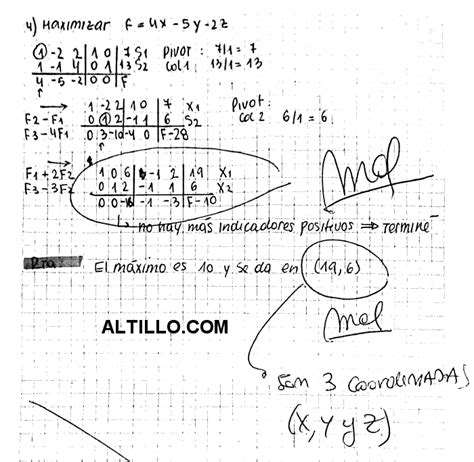 4) Maximizar F = 4x - 5y - 2z
1 -2 2 | 1 0 | 7 S1 Pivot : 7/1 = 7
1 -1 4 | 0 1 | 13 S2 Col 1 : 13/1 = 13
4 -5 -2 | 0 0 | F
1 -2 2 | 1 0 | 7 X1 Pivot :
F2 - F1 0 1 2 | -1 1 | 6 S2 Col 2 6/1 = 6
F3 - 4F1 0 3 -10 | -4 0 | F-28
F1 + 2F2 1 0 6 | -1 2 | 19 X1
F3 - 3F2 0 1 2 | -1 1 | 6 X2
0 0 -16 | -1 -3 | F-10
Mal
no hay más indicadores positivos ⇒ terminé
Rta El máximo es 10 y se da en (19,6)
Mal
ALTILLO.COM
Son 3 coordenadas
(X, Y y Z)